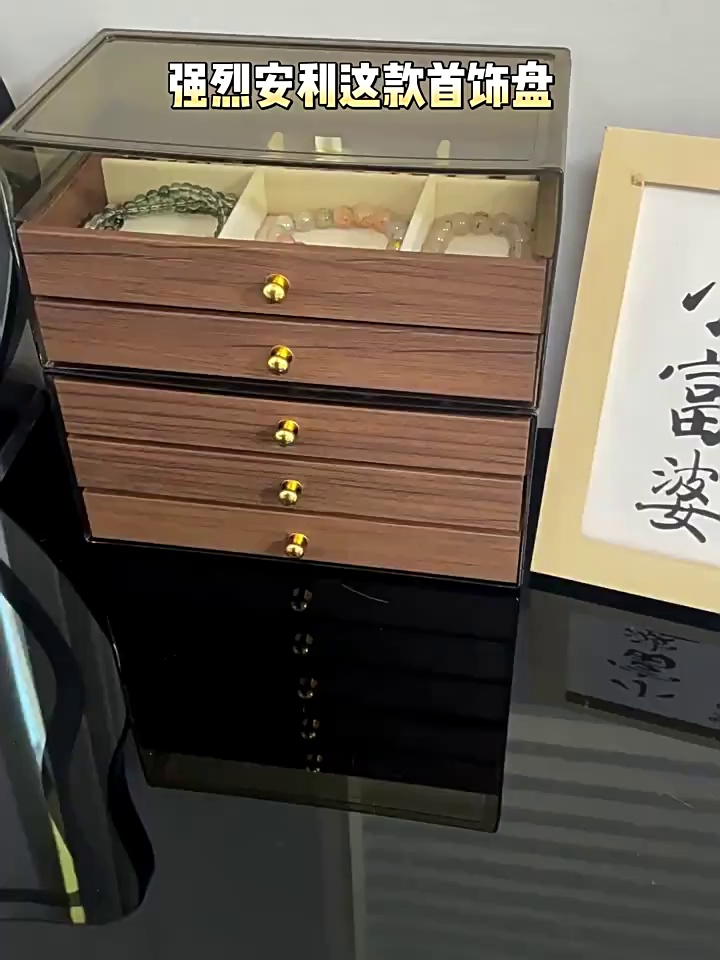 强烈安利这款首饰盘
小
富
婆